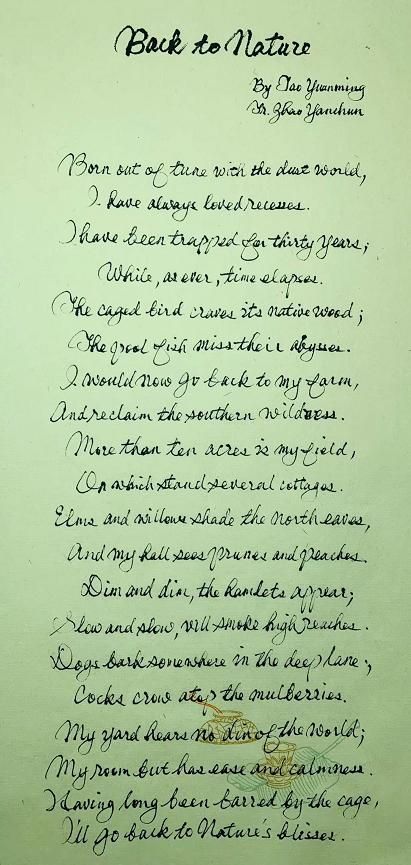 Back to Nature
By Tao Yuanming
Tr. Zhao Yanchun
Born out of tune with the dust world,
I have always loved recesses.
I have been trapped for thirty years;
While, as ever, time elapses.
The caged bird craves its native wood;
The pool fish miss their abysses.
I would now go back to my farm,
And reclaim the southern wildness.
More than ten acres is my field,
On which stand several cottages.
Elms and willows shade the north eaves,
And my hall sees prunes and peaches.
Dim and dim, the hamlets appear;
Slow and slow, vill smoke high reaches.
Dogs bark somewhere in the deep lane;
Cocks crow atop the mulberries.
My yard hears no din of the world;
My room but has ease and calmness.
Having long been barred by the cage,
I'll go back to Nature's blisses.